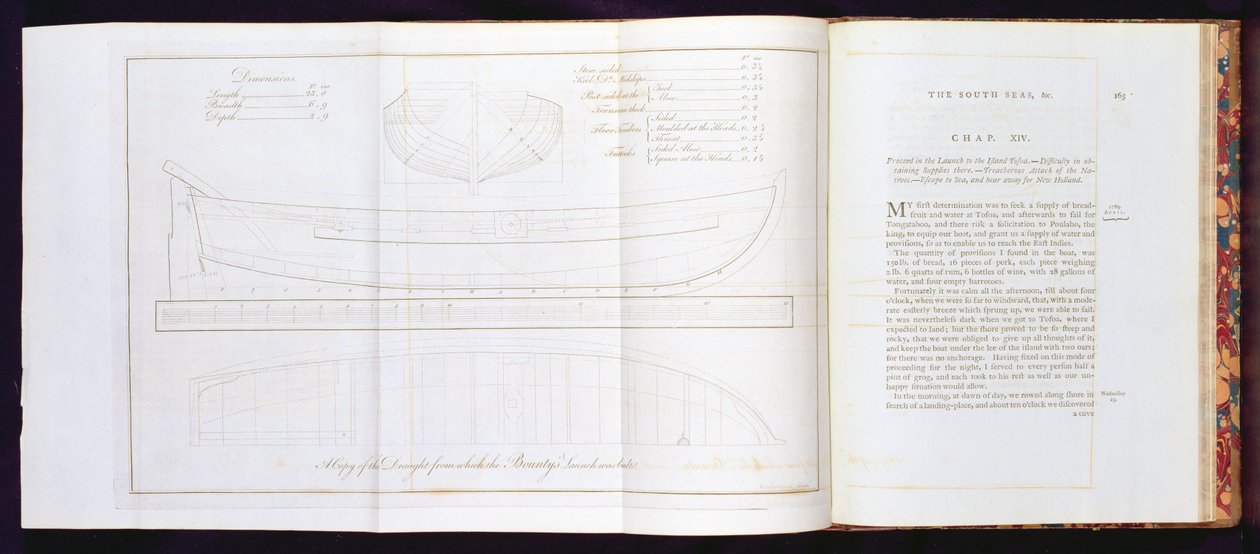 Demensions
Ft ins
Length 23.0
Breadth 6.9
Depth 2.9
Ft ins
Stem sided 0.3½
Keel Do Midships 0.3¼
Post sided at the { Tuck 0.3½
Alow 0.3
Transom thick 0.2
Floor Timbers { Sided 0.2
Moulded at the Heads 0.2¼
Throat
Futtocks { Sided Alow 0.2
Square at the Heads
A Copy of the Draught from which the Bounty's Launch was built.
THE SOUTH SEAS, &c. 265
CHAP. XIV.
Proceed in the Launch to the Iſland Tofoa.—Difficulty in ob-
taining Supplies there.—Treacherous Attack of the Na-
tives.—Eſcape to Sea, and bear away for New Holland.
MY firſt determination was to ſeek a ſupply of bread-
fruit and water at Tofoa, and afterwards to ſail for
Tongataboo, and there riſk a ſolicitation to Poulaho, the
king, to equip our boat, and grant us a ſupply of water and
proviſions, ſo as to enable us to reach the Eaſt Indies.
1789.
APRIL.
The quantity of proviſions I found in the boat, was
150 lb. of bread, 16 pieces of pork, each piece weighing
2 lb. 6 quarts of rum, 6 bottles of wine, with 28 gallons of
water, and four empty barrecoes.
Fortunately it was calm all the afternoon, till about four
o'clock, when we were ſo far to windward, that, with a mode-
rate eaſterly breeze which ſprung up, we were able to ſail.
It was nevertheleſs dark when we got to Tofoa, where I
expected to land; but the ſhore proved to be ſo ſteep and
rocky, that we were obliged to give up all thoughts of it,
and keep the boat under the lee of the iſland with two oars;
for there was no anchorage. Having fixed on this mode of
proceeding for the night, I ſerved to every perſon half a
pint of grog, and each took to his reſt as well as our un-
happy ſituation would allow.
In the morning, at dawn of day, we rowed along ſhore in
ſearch of a landing-place, and about ten o'clock we diſcovered
Wedneſday
29.
a cove